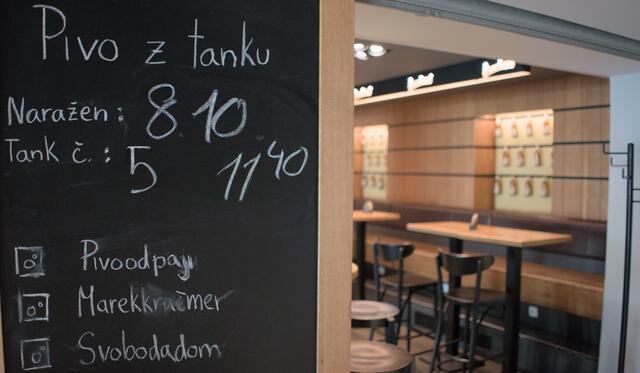 Pivo z tanku
Naražen: 8.10.
Tank č.: 5 11:40
Pivoodpaji
Marekkračmer
Svobodadom